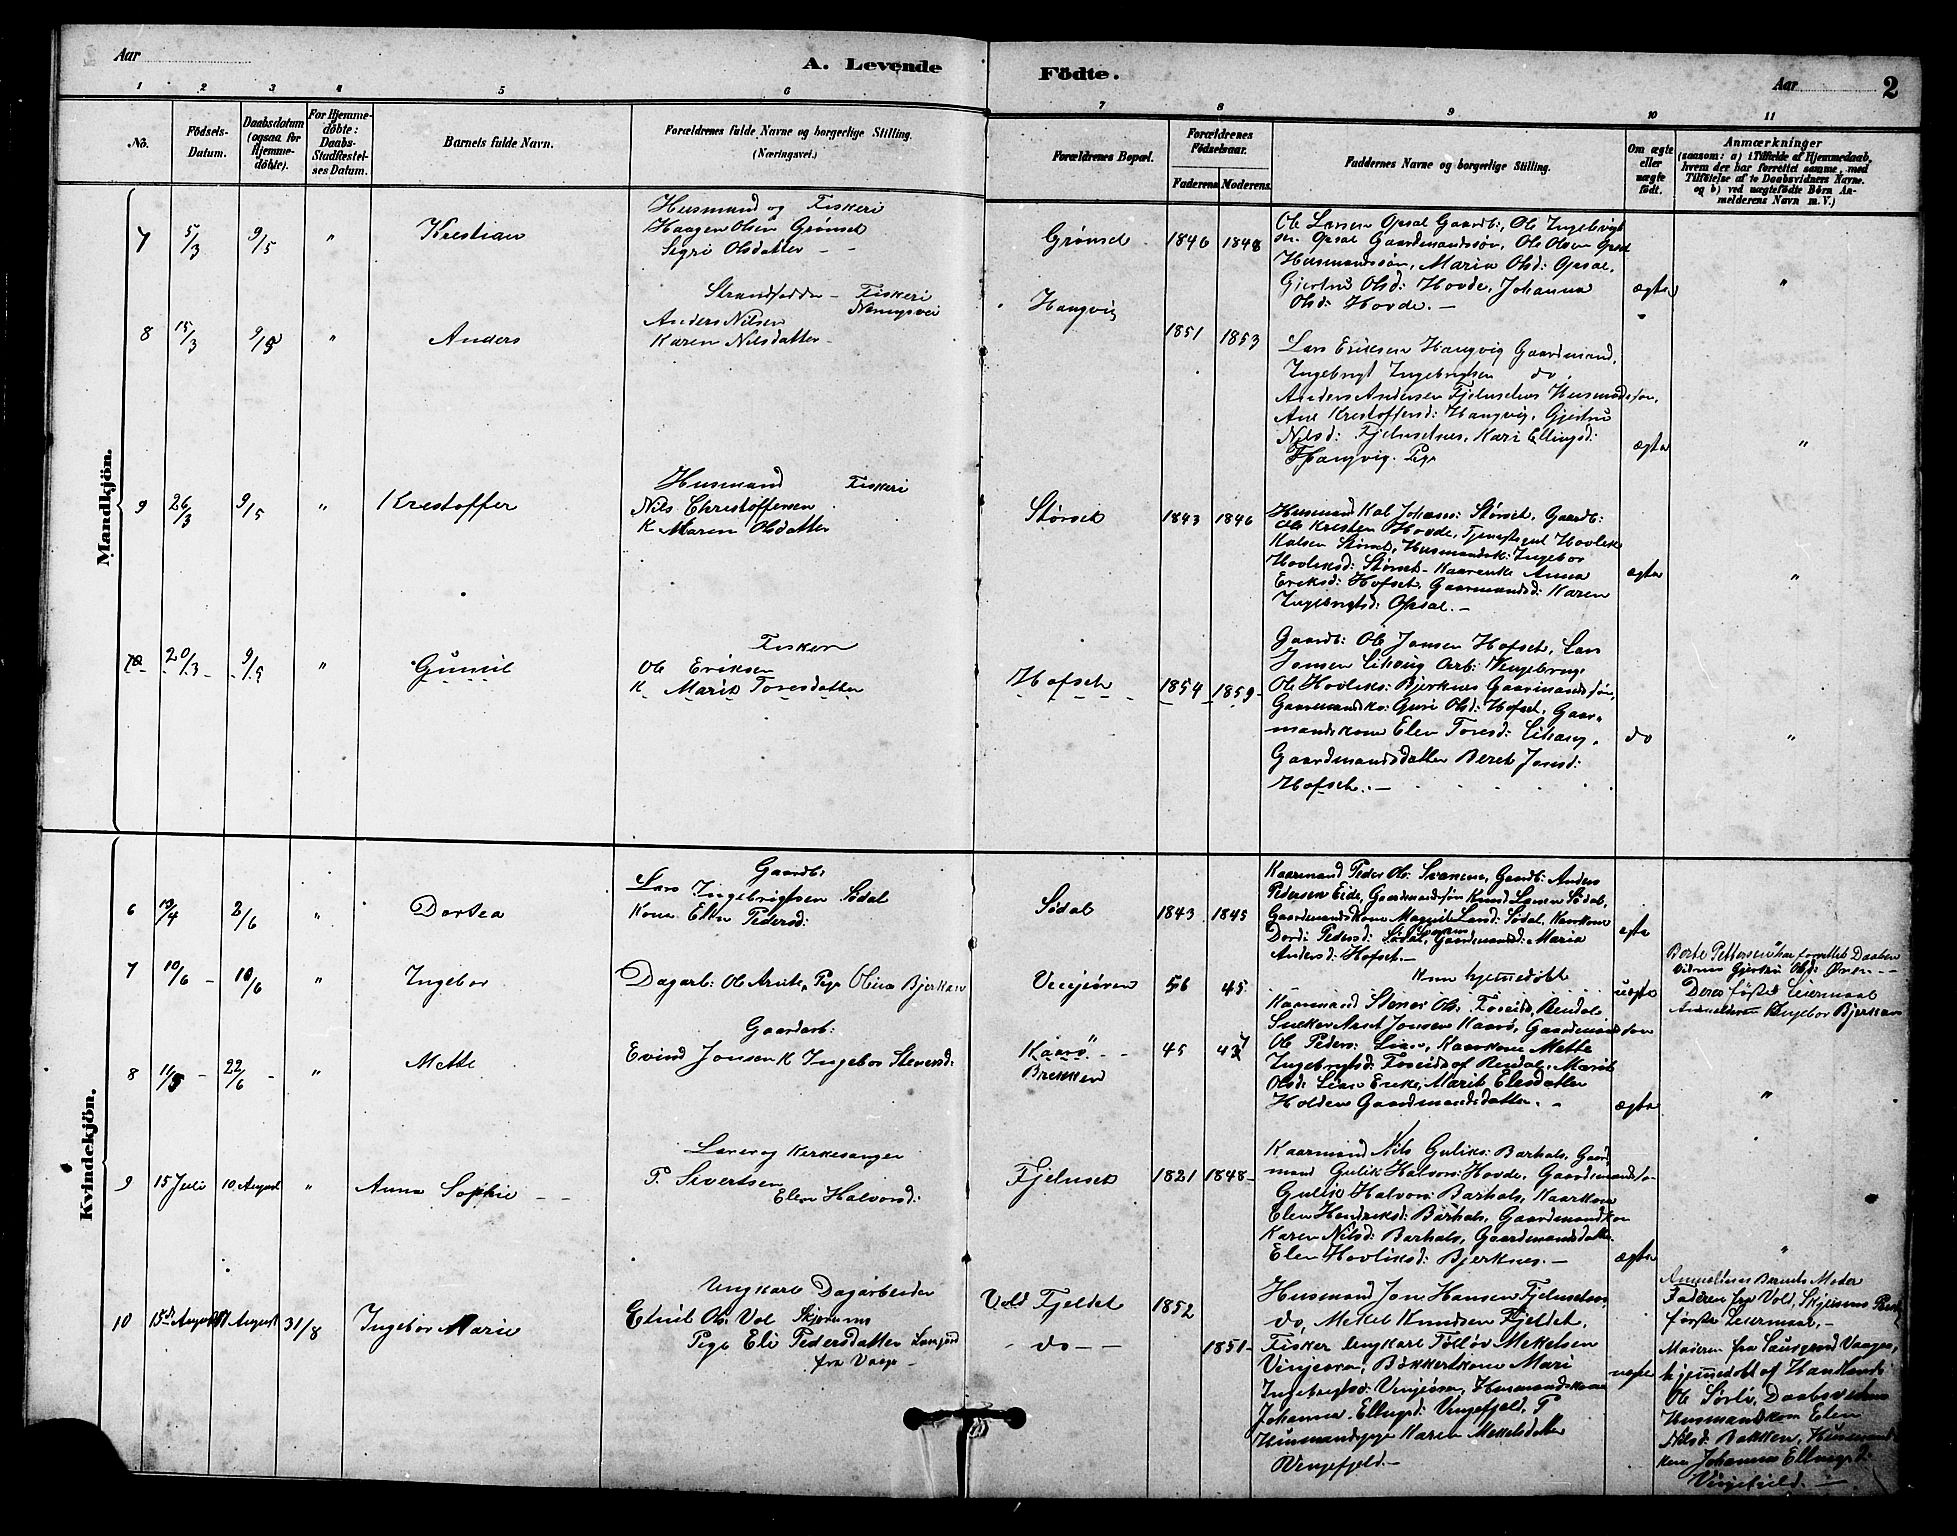 Aar
A. Levende Födte.
Aar
2
1 2 3 4 5 6 7 8 9 10 11
No.
Födsels-
Datum.
Daabsdatum
(ogsaa for
Hjemme-
döbte).
For Hjemme-
döbte:
Daabs-
Stadfæstel-
ses Datum.
Barnets fulde Navn.
Forældrenes fulde Navne og borgerlige Stilling.
(Næringsvei.)
Forældrenes Bopæl.
Forældrenes
Födselsaar.
Faderens Moderens.
Faddernes Navne og borgerlige Stilling.
Om ægte
eller
uægte
födt.
Anmærkninger
(saasom: a) i Tilfælde af Hjemmedaab,
hvem der har forrettet samme, med
Tilföielse af to Daabsvidners Navne.
og b) ved uægtefödte Börn An-
melderens Navn m. V.)
Mandkjön.
7 5/3 9/5 " Krestian
Husmand og Fiskeri
Haagen Olsen Grönset
Sigri Olsdatter -
Grönset 1846 1848
Ole Larsen Opsal Gaardb:, Ole Ingebrigt
sen Opsal Gaardmandssön, Ole Olsen Opsal
Husmandssön, Maria Olsd: Opsal,
Gjertru Olsd: Hovde, Johanna
Olsd: Hovde. -
ægte "
8 15/3 9/5 " Anders
Strandsidder - Fiskeri
Næringsvei
Anders Nilsen
Karen Nilsdatter
Hangvig 1851 1853
Lars Eriksen Hangvig Gaardmand,
Ingebrigt Ingebrigtsen do,
Anders Andersen Fjelnsetnes Husmandsøn,
Ane Krestoffersd: Hangvig, Gjertru
Nilsd: Fjelnsetnes, Kari Ellingsd:
Hangvig. Pige
ægte "
9 26/3 9/5 " Krestoffer
Husmand Fiskeri
Nils Christoffersen
K Maren Olsdatter
Störset 1843 1846
Husmand Kal Johans: Störset, Gaardb:
Ole Kristen Hovde, Tjenestegut Hovlik
Kalsen Störset, Husmandsk: Ingebor
Hovliksd: Störset - Kaarenke Anna
Eriksd: Hofset, Gaarmandsd: Karen
Ingebrigtsd: Opsal. -
ægte "
10 20/3 9/5 " Gunnil
Fisker
Ole Eriksen
K Marit Toresdatter
Hofset 1854 1859
Gaardb: Ole Jonsen Hofset, Lars
Jonsen Lihaug Arb:
Ole Hovliks: Bjerknes Gaarmandssön,
Gaarmandsko: Guri Olsd: Hofset, Gaar-
mandskone Elen Toresd: Lihaug,
Gaardmandsdatter Beret Jonsd:
Hofset. -
do "
Kvindekjön.
6 10/4 2/6 " Dortea
Gaardb:
Lars Ingebrigtsen Södal
Kone Elen Pedersd:
Södal 1843 1845
Kaarmand Peder Ols: Svanem, Gaardb: Anders
Pedersen Eide, Gaardmandssön Knud Larsen Södal,
Gaardmandskone Magnil Larsd: Södal, Kaarkone
Dordi Pedersd: Södal, Gaardmandsd: Maria
Andersd: Hofset. -
ægte
7 10/6 - 10/6 " Ingebor
Dagarb: Ole Arnts, Pige Olina Bjerkan
Vinjeören 56 45
Kun hjemmedöbt
uægte
Berte Pettersen har forrettet Daaben
Vidner Gjertru Olsd:
Deres förste Leiermaal
Anmelderen Ingebor Bjerkan
8 11/5 - 22/6 - " Mette
Gaardarb:
Evind Jonsen K Ingebor Steversd:
Kaarö
Brekken
45 47
Kaarmand Stener Ols: Foseide, Rendal:
Snekker Arnt Jonsen Kaarö, Gaardmandssön
Ole Peders: Lian, Kaarkone Mette
Ingebrigtsd: Foseide af Rendal, Marit
Olsd: Lian Enke, Marit Elesdatter
Holden Gaardmandsdatter. -
ægte "
9 15 Juli 10 August " Anna Sophie - -
Lærer og Kirkesanger
P. Sivertsen
Elen Halvorsd:
Fjelnset 1821 1848
Kaarmand Nils Guliks: Barhals, Gaard
mand Gulik Halvors: Hovde, Gaardmandssö
Gulik Halvors: Barhals, Kaarkone
Elen Hendriksd: Barhals, Gaardmandskon
Karen Nilsd: Barhals, Gaardmandsdatter
Elen Hovliksd: Bjerknes. -
ægte "
10 15de August August 31/8 Ingebor Marie
Ungkarl Dagarbeider
Ole Vol
Pige Eli Pedersdatter
fra Vaage -
Vold Fjeldet 1852
- do - - 1851 -
Husmand Jon Hansen Fjelnset
do, Mekel Knudsen Fjeldet,
Fisker Ungkarl Tollöv Mekelsen
Vinjeören, Bökkerkone Mari
Ingebrigtsd: Vinjeören, Husmandskone
Johanna Ellingsd: Vingefjeld, P
Husmandspige Karen Mekelsdatter
Vingefjeld. -
uægte
Anmeldtes Barnets Moder
Faderen fra Vold,
förste Leiermaal, -
Moderen fra Vaage,
hjemmedöbt af Handlende
Ole Sörli, Daabsvidne
Husmandskon Elen
Nilsd: Bakken, Husmand
kone Johanna Ellingsd:
Vingefield. -